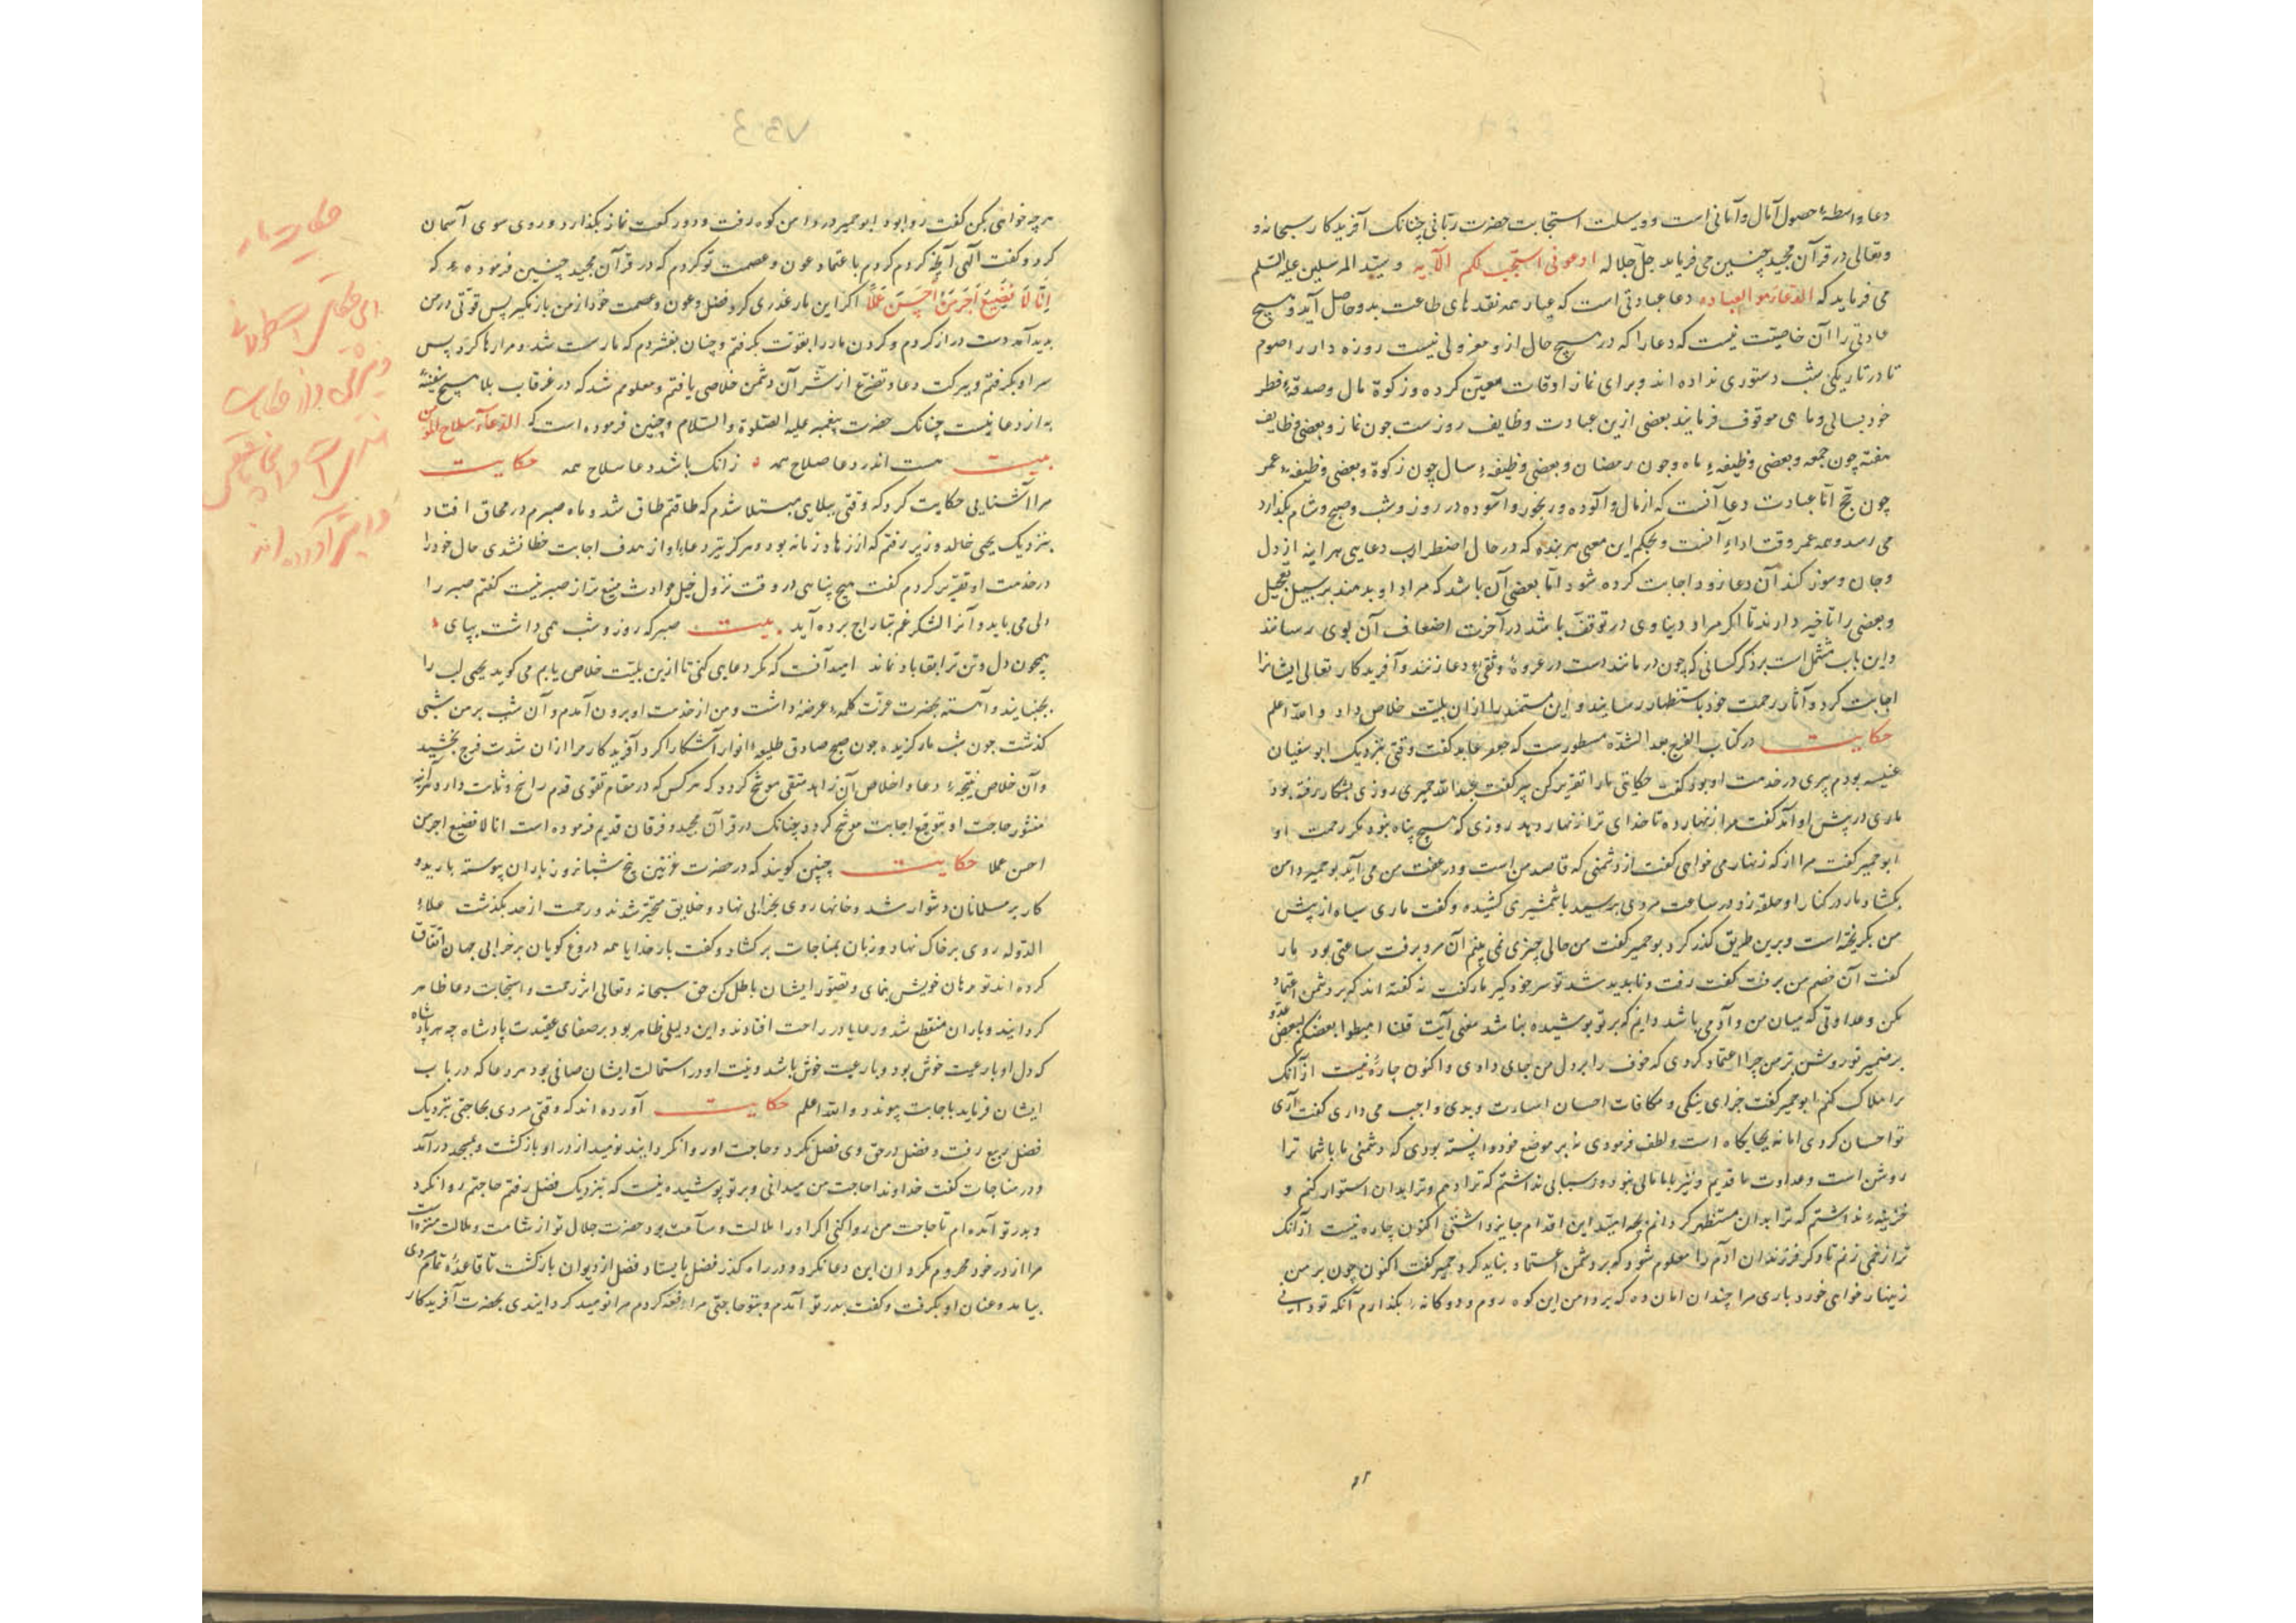 دعا واسطهٔ حصول آمال و امانی است و وسیلت استجابت حضرت ربانی چنانک آفریدکار سبحانه و
وتعالی در قرآن مجید چنین می فرماید جل جلاله ادعونی استجب لکم الآیه و سید المرسلین علیه السلم
می فرماید که الدعا هو العباده دعا عبادتی است که عیار همه نقدهای طاعت بدو حاصل آید و هیچ
عادتی را آن خاصیت نیست که دعا را که در هیچ حال ازو معزولی نیست روزه دار را صوم
تا در تاریکی شب دستوری نداده اند و برای نماز اوقات معین کرده و زکوة مال و صدقهٔ فطر
خود بسالی و ماهی موقوف فرمایند بعضی ازین عبادت وظایف روزست جون نماز و بعضی وظایف
هفته چون جمعه و بعضی وظیفهٔ ماه و جون رمضان و بعضی وظیفهٔ سال چون زکوة و بعضی وظیفهٔ عمر
چون حج اما عبادت دعا آنست که از مال و آلوده و رنجور و آسوده در روز و شب و صبح و شام بگذارد
می رسد و همه عمر وقت اداء آنست و بحکم این معنی هر بنده که در حال اضطراب دعایی هر اینه از دل
و جان و سوز کند آن دعا زود اجابت کرده شود اما بعضی آن باشد که مراد او بدهند بر سبیل تعجیل
و بعضی را تاخیر دارند تا اگر مراد دنیاوی در توقف باشد در آخرت اضعاف آن بوی رسانند
و این باب مشتمل است بر ذکر کسانی که چون درمانند دست در عروهٔ وثقیٔ دعا زنند و آفریدکار تعالی ایشانرا
اجابت کرد و آثار رحمت خود باستظهار رسانید و این مستمند را از ان بلیت خلاص داد والله اعلم
حکایت در کتاب الفرج بعد الشده مسطورست که جعفر عابد گفت وقتی بنزدیک ابو سفیان
بودم پیری در خدمت او بود گفت حکایتی ما را تقریر کن پیر گفت عبدالله حمیری روزی بشکار رفته بود
ماری در پیش او آمد گفت مرا زنهار ده تا خدای ترا زنهار دهد روزی که هیچ پناه نبود مگر رحمت او
ابو حمیر گفت مرا از که زنهار می خواهی گفت از دشمنی که قاصد من است و در عقب من می آید بو حمیر دامن
بکشاد مار در کنار او حلقه زد در ساعت مردی برسید با شمشیری کشیده و گفت ماری سیاه از پیش
من بکریخته است و برین طریق گذر کرد بو حمیر گفت من حالی چیزی نمی بینم آن مرد برفت ساعتی بود مار
گفت آن خصم من برفت گفت رفت و ناپدید شد تو سر خود گیر مار گفت نه گفته اند که بر دشمن اعتماد
مکن و عداوتی که میان من و آدمی باشد دانم که بر تو پوشیده نباشد معنی آیت قلنا اهبطوا بعضکم لبعض عدو
بر ضمیر تو روشن تر من چرا اعتماد کردی که خوف را بر دل من جای دادی و اکنون چارهٔ نیست از آنک
ترا هلاک کنم ابو حمیر گفت جزای نیکی و مکافات احسان اساءت و بدی واجب می داری گفت آری
تو احسان کردی اما نه بجایگاه است و لطف فرمودی نه بر موضع خود دانسته بودی که دشمنی ما با شما ترا
روشن است و عداوت ما قدیم و نیز با ما مالی نبود و اسبابی نداشتم که ترا دهم و ترا بدان استوار کنم و
خزینهٔ نداشتم که ترا بدان مستظهر کردانم بچه امید این اقدام جایز داشتی اکنون چاره نیست از آنک
ترا زخمی زنم تا دگر فرزندان آدم را معلوم شود که بر دشمن اعتماد نباید کرد حمیر گفت اکنون چون بر من
زینهار خواهی خورد باری مرا چندان امان ده که بر دامن این کوه روم و دوکانهٔ بگذارم آنکه تو دانی
هر چه خواهی بکن گفت روا بود ابو حمیر در دامن کوه رفت و دو رکعت نماز بگذارد و روی سوی آسمان
کرد و گفت الهی آنچه کردم کردم باعتماد عون و عصمت تو کردم که در قرآن مجید چنین فرموده که
انا لا نضیع اجر من احسن عملا اگر این مار غدری کرد فضل و عون و عصمت خود از من بازمگیر پس قوتی در من
پدید آمد دست دراز کردم و کردن مار را بقوت بگرفتم و چنان بفشردم که مار سست شد و مرا رها کرد پس
سر او بگرفتم و ببرکت دعا و تضرع از شر آن دشمن خلاصی یافتم و معلوم شد که در غرقاب بلا هیچ سفینهٔ
به از دعا نیست چنانک حضرت پیغمبر علیه الصلوة و السلام چنین فرموده است که الدعاء سلاح المومن
بیت هست اندر دعا صلاح همه زانک باشد دعا سلاح همه حکایت
مرا آشنایی حکایت کرد که وقتی ببلایی مبتلا شدم که طاقتم طاق شد و ماه صبرم در محاق افتاد
بنزدیک یحیی خالد وزیر رفتم که از زهاد زمانه بود و هرگز تیر دعای او از هدف اجابت خطا نشدی حال خود را
در خدمت او تقریر کردم گفت هیچ پناهی در وقت نزول خیل حوادث منیع تر از صبر نیست گفتم صبر را
دلی می باید و آنرا لشکر غم بتاراج برده آید بیت صبر که روز و شب همی داشت بپای
همچون دل و تن ترا بقا باد نماند امید آنست که مگر دعایی کنی تا ازین بلیت خلاص یابم می گوید یحیی لب را
بجنبانید و آهسته بحضرت عزت کلمهٔ عرضه داشت و من از خدمت او برون آمدم و آن شب بر من شبی
گذشت جون شب مار گزیده جون صبح صادق طلیعهٔ انوار آشکارا کرد آفریدکار مرا از ان شدت فرج بخشید
و آن خلاص نتیجهٔ دعا و اخلاص آن زاهد متقی موشح کردد که هر کس که در مقام تقوی قدم راسخ و ثابت دارد هر آینه
منشور حاجت او بتوقیع اجابت موشح کردد چنانک در قرآن مجید و فرقان قدیم فرموده است انا لا نضیع اجر من
احسن عملا حکایت چنین گویند که در حضرت غزنین پنج شبانروز باران پیوسته بارید و
کار بر مسلمانان دشوار شد و خانها روی بخرابی نهاد و خلایق متحیر شدند و زحمت از حد بگذشت علاء
الدوله روی بر خاک نهاد و زبان بمناجات برکشاد و گفت بار خدایا همه دروغ گویان بر خرابی جهان اتفاق
کرده اند تو برهان خویش بنمای و تصور ایشان باطل کن حق سبحانه و تعالی اثر رحمت و استجابت دعا ظاهر
گردانید و باران منقطع شد و رعایا در راحت افتادند و این دلیلی ظاهر بود بر صفای عقیدت پادشاه چه هر پادشاه
که دل او با رعیت خوش بود و با رعیت خوش باشد و نیت او در استمالت ایشان صافی بود هر دعا که در باب
ایشان فرماید باجابت پیوندد و الله اعلم حکایت آورده اند که وقتی مردی بحاجتی بنزدیک
فضل ربیع رفت و فضل در حق وی فضل نکرد و حاجت او روا نگردانید نومید از در او بازگشت و بمسجد درآمد
و در مناجات گفت خداوندا حاجت من میدانی و بر تو پوشیده نیست که بنزدیک فضل رفتم حاجتم روا نکرد
و بدر تو آمده ام تا حاجت من روا کنی اگر او را ملالت و سآمت بود حضرت جلال تو از شامت و ملالت منزه است
مرا از در خود محروم مگردان این دعا بکرد و در راه گذر فضل بایستاد فضل از دیوان بازگشت تا قاعدهٔ تمام مردی
بیامد و عنان او بگرفت و گفت بدر تو آمدم و بتو حاجتی مرافعه کردم مرا نومید گردانیدی بحضرت آفریدکار
حکایت مار